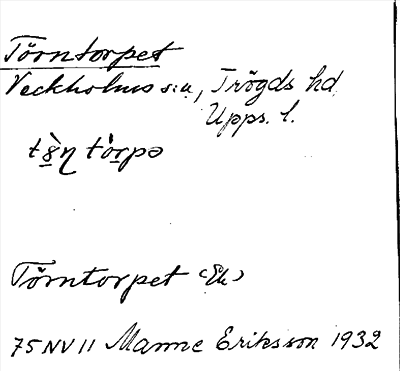 Törntorpet
Veckholms s:n, Trögds hd
Upps. l.
Törntorpet (Ek)
75 NV 11 Manne Eriksson 1932